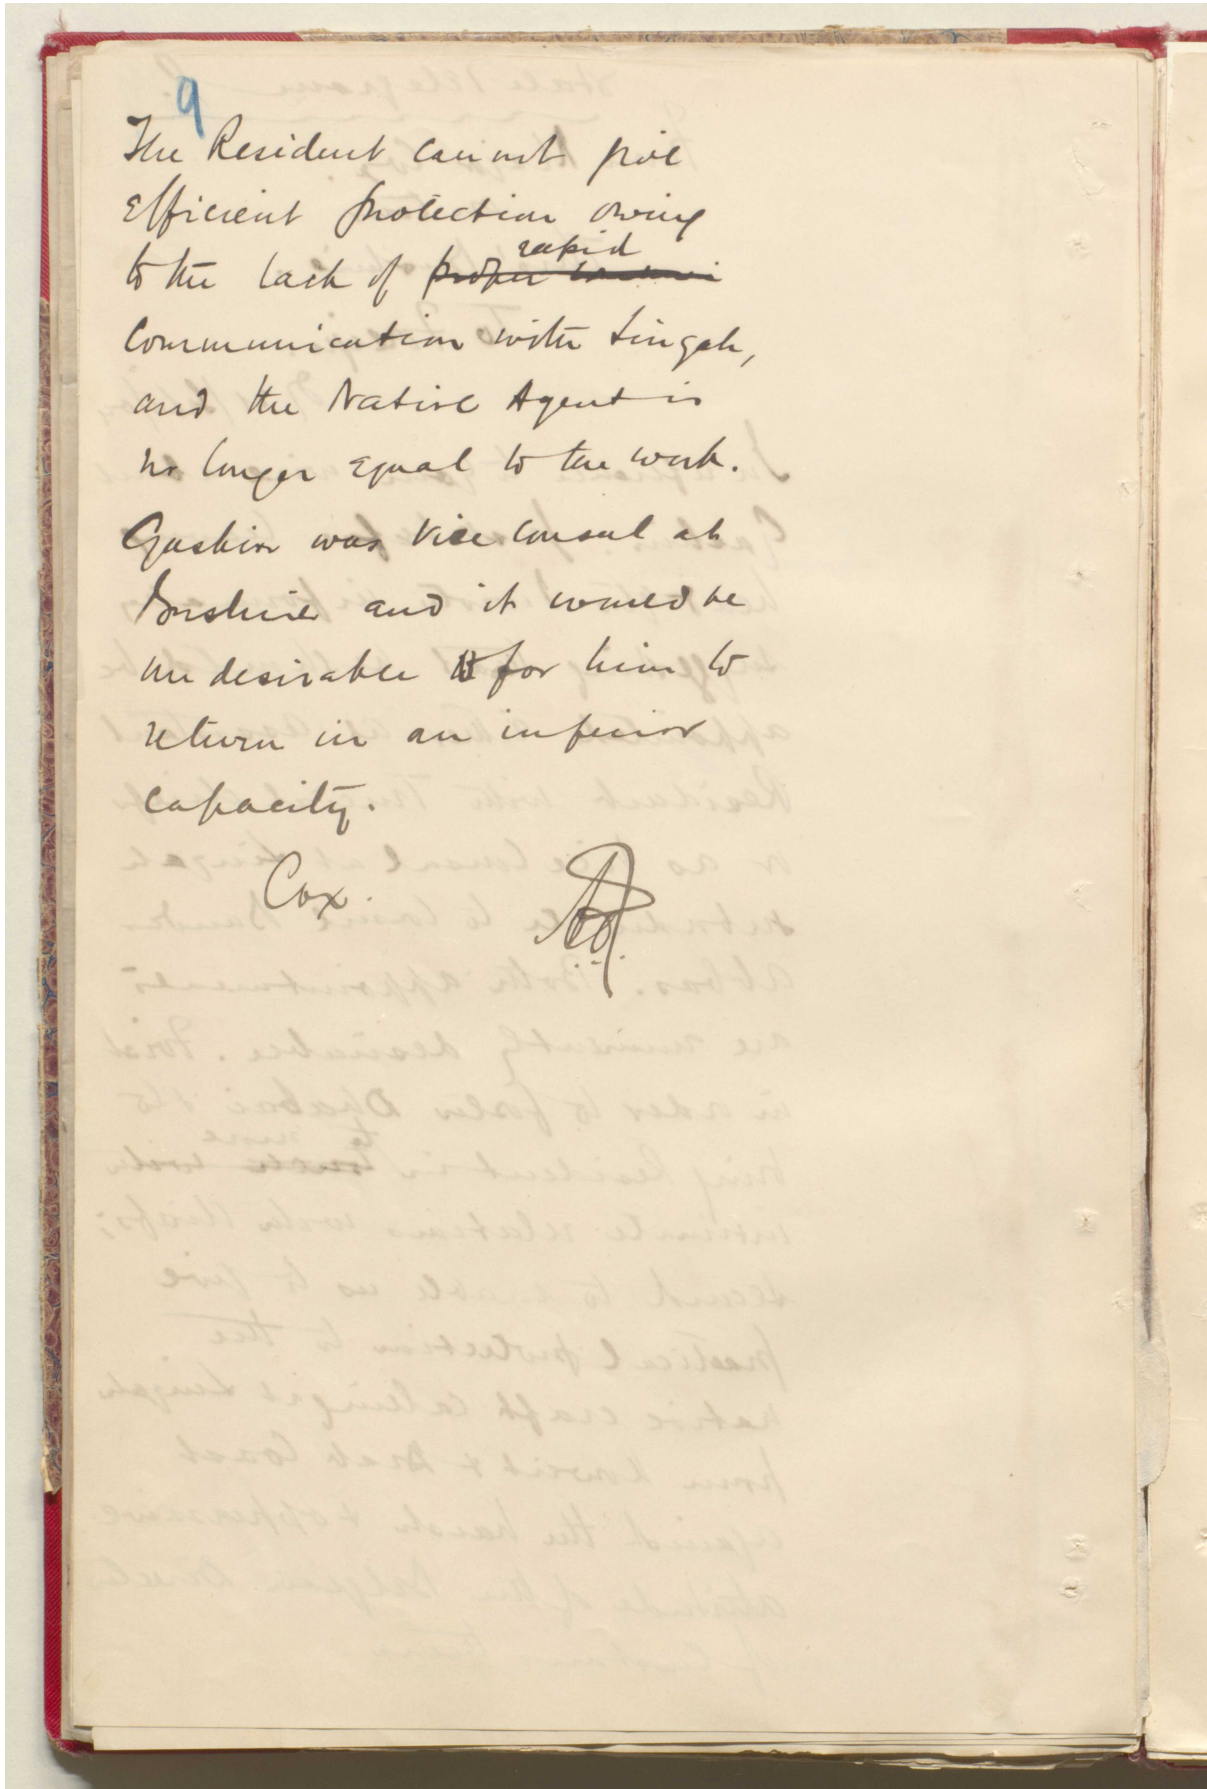 9
The Resident cannot give
efficient protection owing
rapid
to the lack of proper
communication with Lingah,
and the Native Agent is
no longer equal to the work.
Gaskin was Vice Consul at
Bushire and it would be
undesirable for him to
return in an inferior
capacity.
Cox.